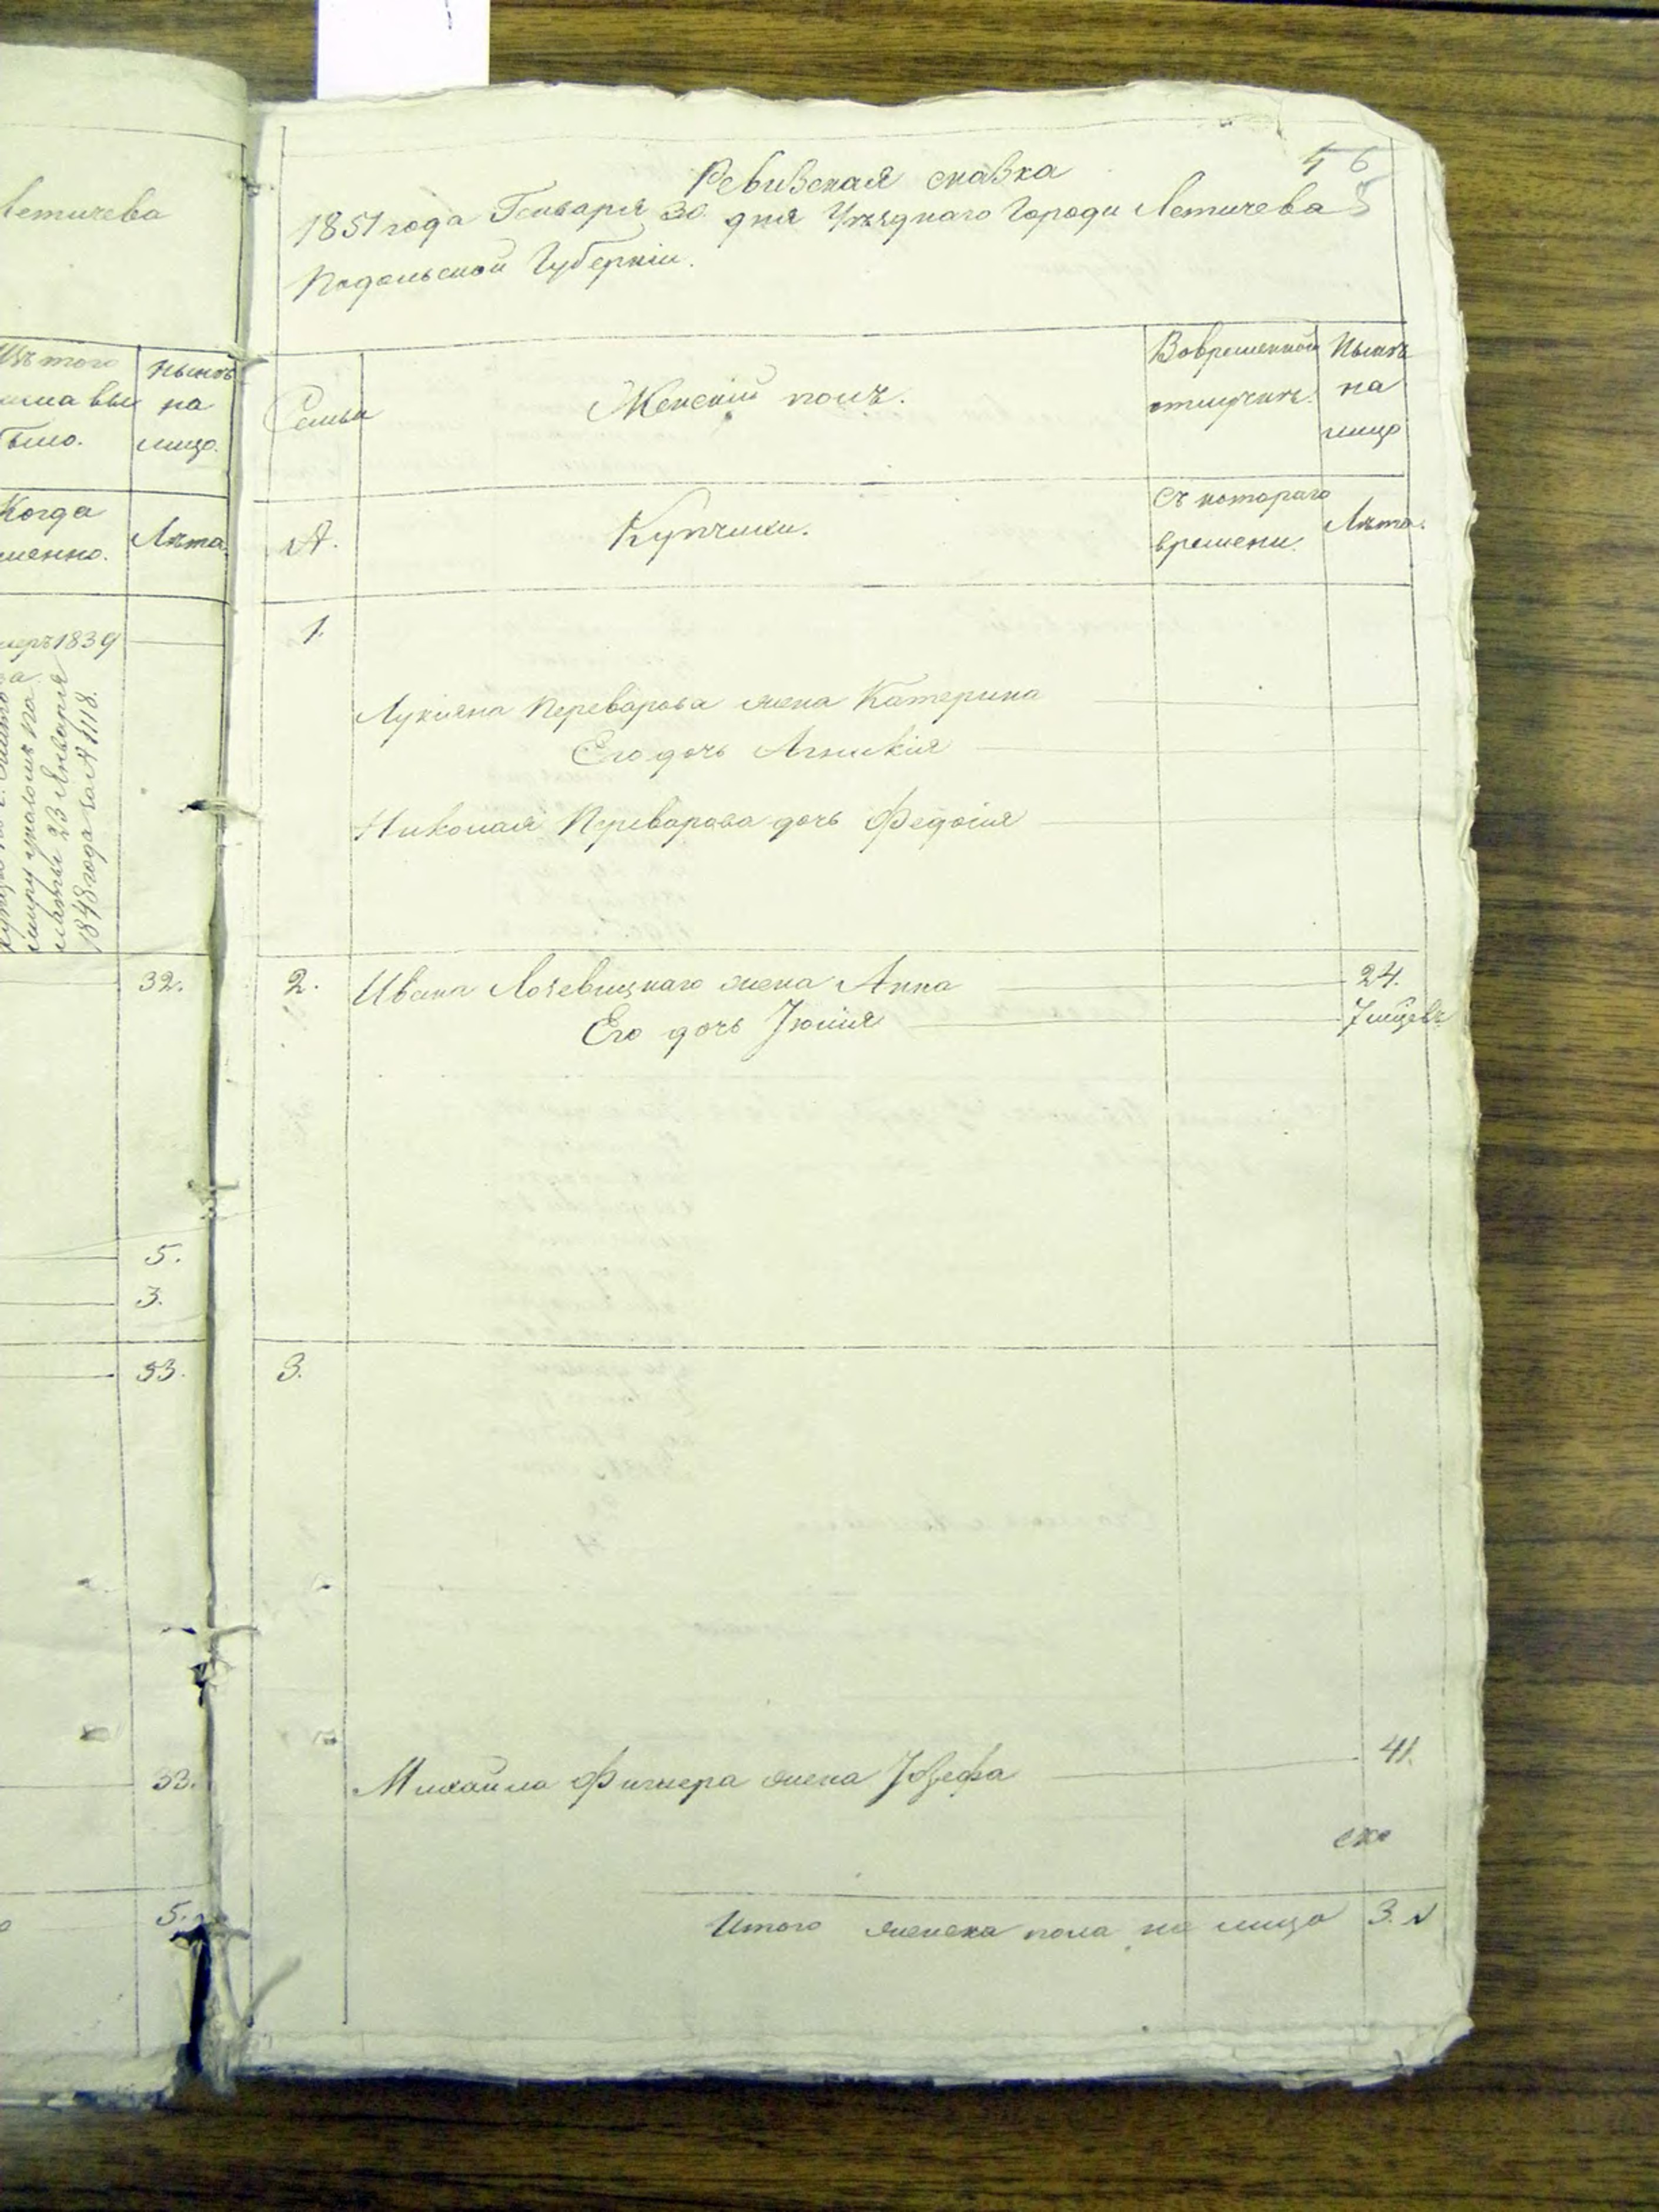 Летичева
Изъ того
числа вы
было.
ныне
на
лицо.
Когда
именно.
Лѣта.
1839
23 Января
1848 года за № 1118.
32.
5.
3.
53.
33.
5.
5 6
Ревизская сказка
1851 года Генваря 30 дня Уѣзднаго Города Летичева
Подольской Губерніи.
Семьи
Женскій полъ.
Вовременной
отлучкѣ.
Нынѣ
на
лицо
А.
Купчихи.
Съ котораго
времени.
Лѣта.
1.
Лукіяна Переварова жена Катерина
Его дочь Агникія
Николая Переварова дочь Федосія
2.
Ивана жена Анна
24.
Его дочь Юлія
7 мѣсяц.
3.
Михайла Фишера жена Юзефа
41.
Итого женска пола на лицо
3.